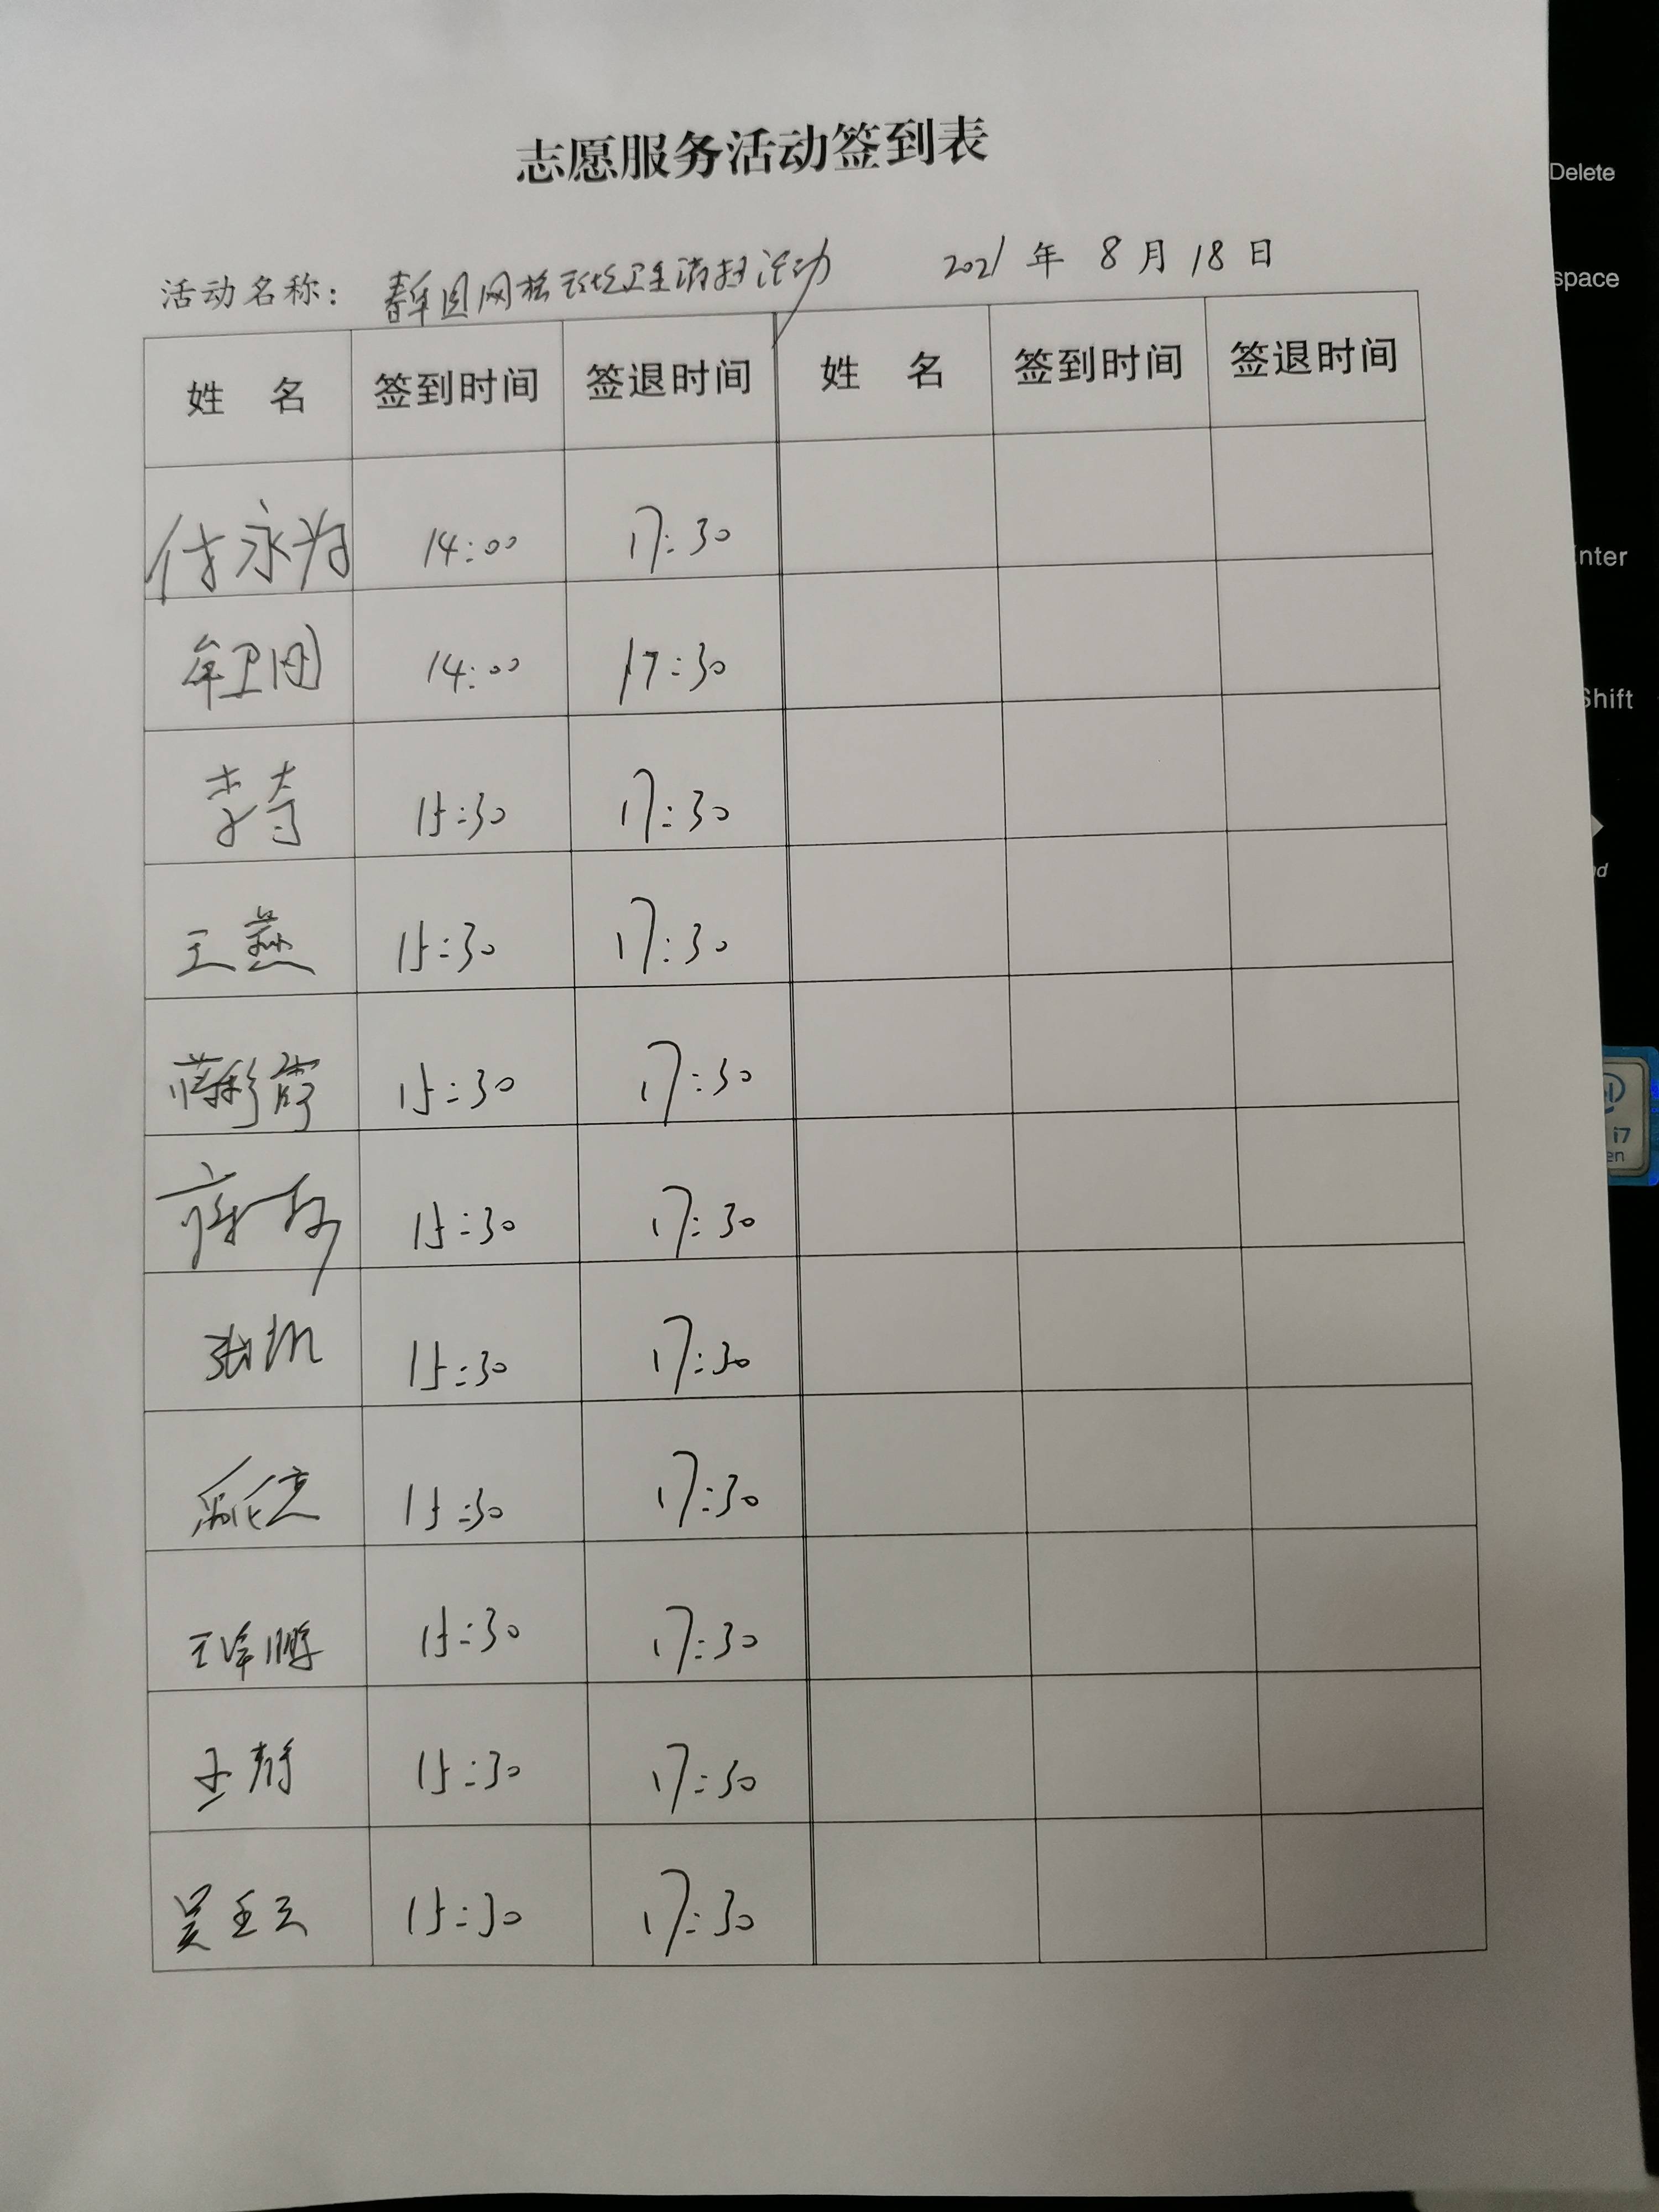 志愿服务活动签到表
活动名称： 网格 卫生清扫活动 2021年8月18日
姓 名 签到时间 签退时间 姓 名 签到时间 签退时间
付永为 14:00 17:30
牟卫国 14:00 17:30
李奇 15:30 17:30
王燕 15:30 17:30
蒋彩霞 15:30 17:30
蒋 15:30 17:30
张帆 15:30 17:30
15:30 17:30
王泽鹏 15:30 17:30
王静 15:30 17:30
吴玉云 15:30 17:30
Delete
space
nter
Shift
i7